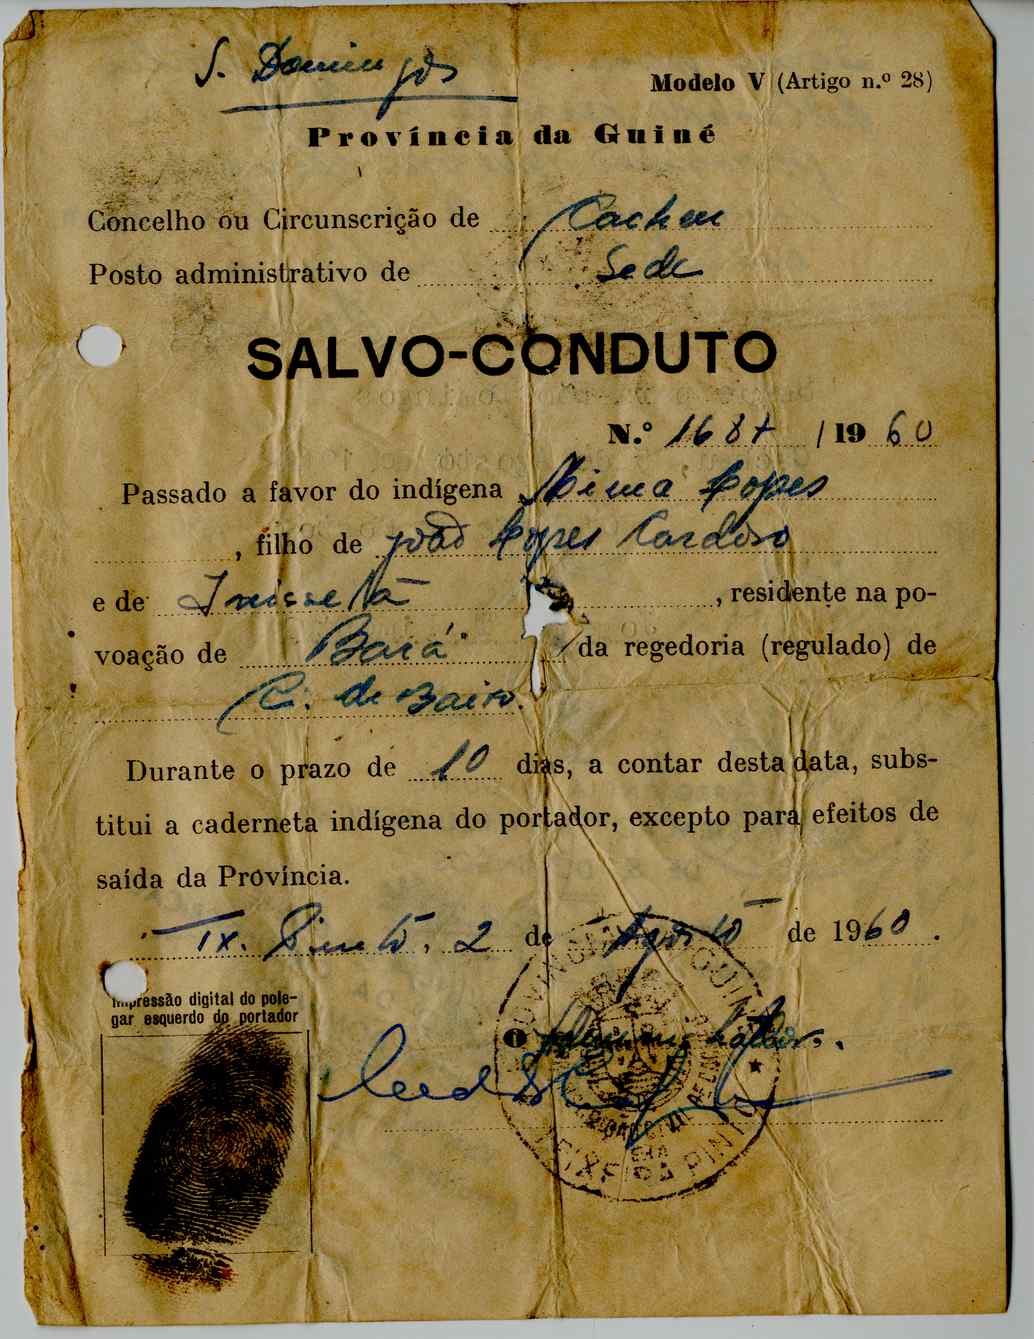 S. Domingos
Modelo V (Artigo n.º 28)
Província da Guiné
Concelho ou Circunscrição de Cacheu
Posto administrativo de Sede
SALVO-CONDUTO
N.º 1687 /1960
Passado a favor do indígena Lopes
, filho de João Lopes Cardoso
e de , residente na po-
voação de Bará da regedoria (regulado) de
C. de Baixo.
Durante o prazo de 10 dias, a contar desta data, subs-
titui a caderneta indígena do portador, excepto para efeitos de
saída da Província.
Tx. Pinto, 2 de Agosto de 1960.
Impressão digital do pole-
gar esquerdo do portador
O Administrador.
TEIXEIRA PINTO